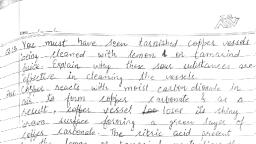 Q.13 You must have seen tarnished copper vessels
being cleaned with lemon or tamarind
juice. Explain why these sour substances are
effective in cleaning the vessels.
Ans Copper reacts with moist carbon dioxide in
air to form copper carbonate & as a
result, copper vessel loses its shiny
brown surface forming a green layer of
copper carbonate. The citric acid present
in the lemon or